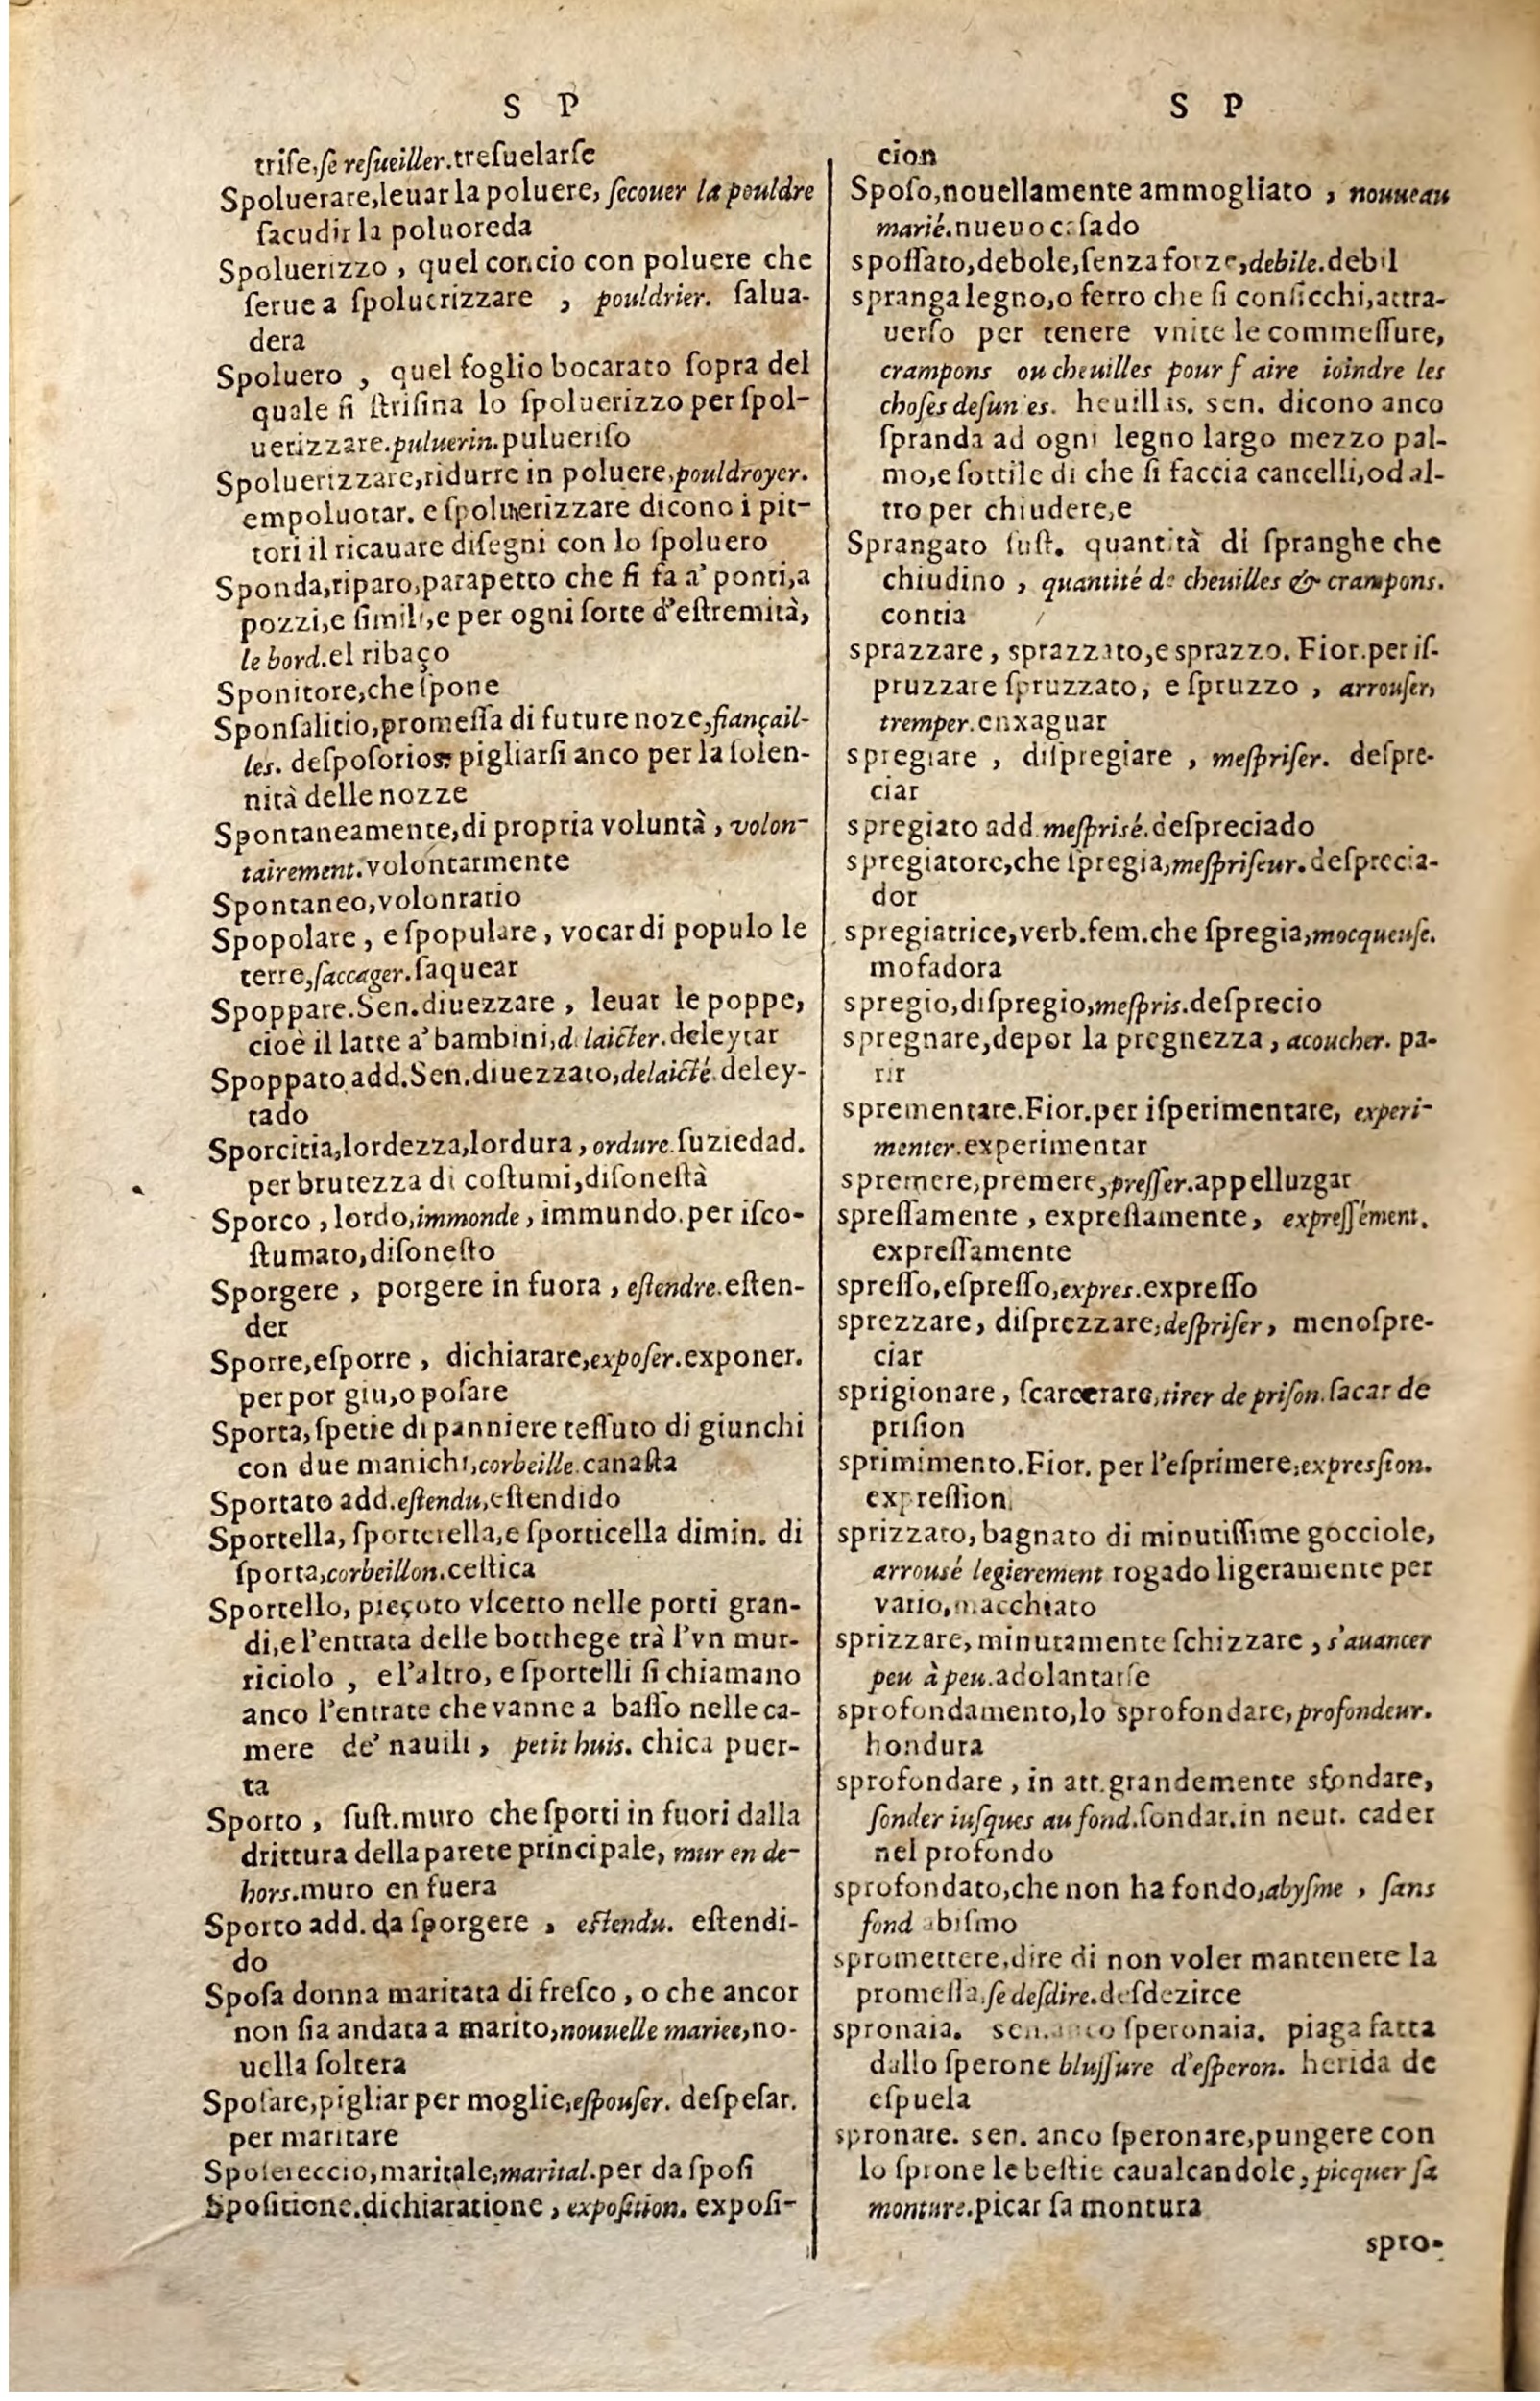 S P
triſe,ſe reſueiller.treſuelarſe
Spoluerare,leuar la poluere, ſecouer la pouldre
ſacudir la poluoreda
Spoluerizzo , quel concio con poluere che
ſerue a ſpoluerizzare , pouldrier. ſalua-
dera
Spoluero , quel foglio bocarato ſopra del
quale ſi ſtriſina lo ſpoluerizzo per ſpol-
uerizzare.puluerin.pulueriſo
Spoluerizzare,ridurre in poluere,pouldroyer.
empoluotar. e ſpoluerizzare dicono i pit-
tori il ricauare diſegni con lo ſpoluero
Sponda,riparo,parapetto che ſi fa a' ponti,a
pozzi,e ſimili,e per ogni ſorte d'eſtremità,
le bord.el ribaço
Sponitore,che ſpone
Sponſalitio,promeſſa di future noze,fiançail-
les. deſpoſorios. pigliarſi anco per la ſolen-
nità delle nozze
Spontaneamente,di propria voluntà , volon-
tairement.volontarmente
Spontaneo,volonrario
Spopolare , e ſpopulare , vocar di populo le
terre,ſaccager.ſaquear
Spoppare.Sen.diuezzare , leuar le poppe,
cioè il latte a' bambini,delaicter.deleytar
Spoppato add.Sen.diuezzato,delaicté.deley-
tado
Sporcitia,lordezza,lordura , ordure.ſuziedad.
per brutezza di coſtumi,diſoneſtà
Sporco , lordo,immonde , immundo.per iſco-
ſtumato,diſoneſto
Sporgere , porgere in fuora , eſtendre.eſten-
der
Sporre,eſporre , dichiarare,expoſer.exponer.
per por giu,o poſare
Sporta,ſpetie di panniere teſſuto di giunchi
con due manichi,corbeille.canaſta
Sportato add.eſtendu,eſtendido
Sportella, ſporterella,e ſporticella dimin. di
ſporta,corbeillon.ceſtica
Sportello, pieçoto vſcetto nelle porti gran-
di,e l'entrata delle botthege trà l'vn mur-
riciolo , e l'altro, e ſportelli ſi chiamano
anco l'entrate che vanne a baſſo nelle ca-
mere de' nauili , petit huis. chica puer-
ta
Sporto , ſuſt.muro che ſporti in fuori dalla
drittura della parete principale, mur en de-
hors.muro en fuera
Sporto add. da ſporgere , eſtendu. eſtendi-
do
Spoſa donna maritata di freſco , o che ancor
non ſia andata a marito,nouuelle mariee,no-
uella ſoltera
Spoſare,pigliar per moglie,eſpouſer. deſpeſar.
per maritare
Spoſereccio,maritale,marital.per da ſpoſi
Spoſitione.dichiaratione , expoſition. expoſi-
S P
cion
Spoſo,nouellamente ammogliato , nouueau
marié.nueuo caſado
spoſſato,debole,ſenza forze,debile.debil
spranga legno,o ferro che ſi conſicchi,attra-
uerſo per tenere vnite le commeſſure,
crampons ou cheuilles pour f aire ioindre les
choſes deſunies. heuillas. sen. dicono anco
ſpranda ad ogni legno largo mezzo pal-
mo,e ſottile di che ſi faccia cancelli,od al-
tro per chiudere,e
Sprangato ſuſt. quantità di ſpranghe che
chiudino , quantité de cheuilles & crampons.
contia
sprazzare , sprazzato,e sprazzo. Fior.per iſ-
pruzzare ſpruzzato, e ſpruzzo , arrouſer,
tremper.enxaguar
spregiare , diſpregiare , meſpriſer. deſpre-
ciar
spregiato add.meſpriſé.deſpreciado
spregiatore,che ſpregia,meſpriſeur.deſprecia-
dor
spregiatrice,verb.fem.che ſpregia,mocqueuſe.
mofadora
spregio,diſpregio,meſpris.deſprecio
spregnare,depor la pregnezza , acoucher. pa-
rir
sprementare.Fior.per iſperimentare, experi-
menter.experimentar
spremere,premere,preſſer.appelluzgar
spreſſamente , expreſſamente, expreſſément.
expreſſamente
spreſſo,eſpreſſo,expres.expreſſo
sprezzare, diſprezzare,deſpriſer, menoſpre-
ciar
sprigionare , ſcarcerare,tirer de priſon.ſacar de
priſion
sprimimento.Fior. per l'eſprimere,expreſſion.
expreſſion
sprizzato, bagnato di minutiſſime gocciole,
arrousé legierement rogado ligeramente per
vario,macchiato
sprizzare, minutamente ſchizzare , s'auancer
peu à peu.adolantarſe
sprofondamento,lo sprofondare,profondeur.
hondura
sprofondare , in att.grandemente sfondare,
ſonder iuſques au fond.ſondar.in neut. cader
nel profondo
sprofondato,che non ha fondo,abyſme , ſans
fond abiſmo
spromettere,dire di non voler mantenere la
promeſſa.ſe deſdire.deſdezirce
spronaia. sen.anco ſperonaia. piaga fatta
dallo ſperone bluſſure d'eſperon. herida de
eſpuela
spronare. sen. anco ſperonare,pungere con
lo ſprone le beſtie caualcandole, picquer ſa
monture.picar ſa montura
spro-